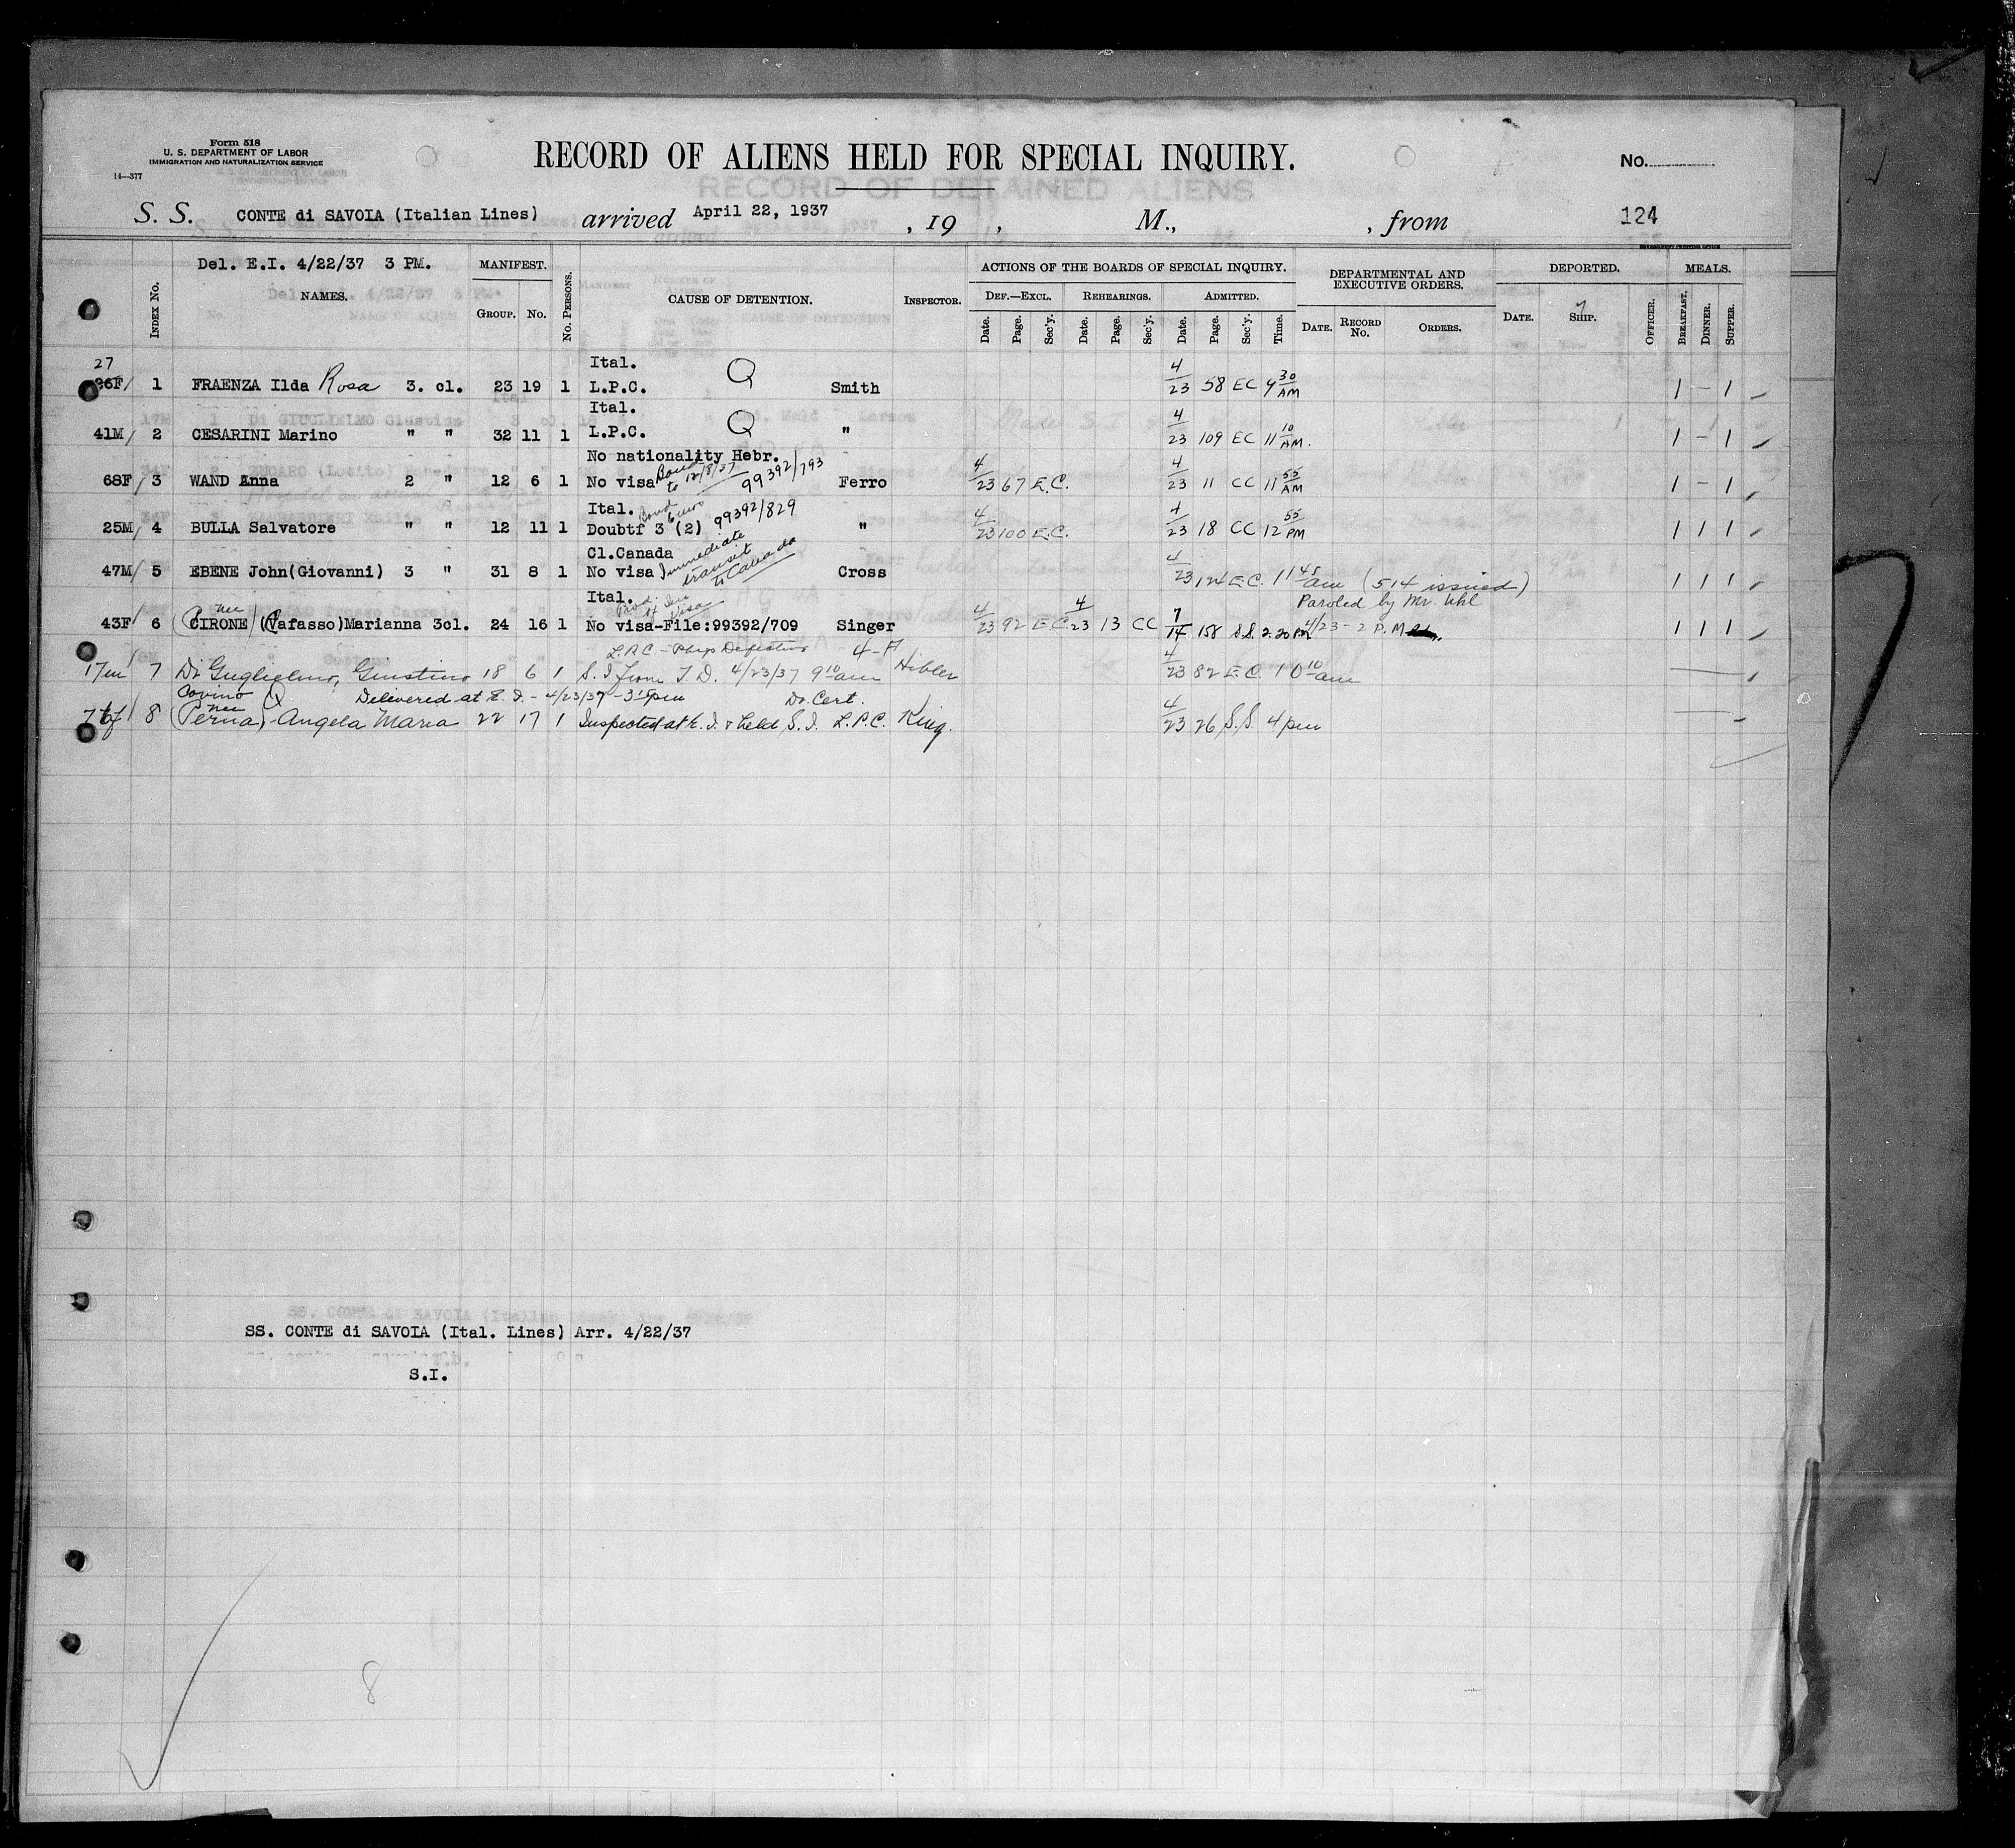 Form 518
U. S. DEPARTMENT OF LABOR
IMMIGRATION AND NATURALIZATION SERVICE
14—377
RECORD OF ALIENS HELD FOR SPECIAL INQUIRY.
No.
RECORD OF DETAINED ALIENS
S. S. CONTE di SAVOIA (Italian Lines) arrived April 22, 1937 , 19 , M., , from 124
Del. E.I. 4/22/37 3 PM.
INDEX No. NAMES. MANIFEST. GROUP. No. No. PERSONS. CAUSE OF DETENTION. INSPECTOR. ACTIONS OF THE BOARDS OF SPECIAL INQUIRY. DEPARTMENTAL AND EXECUTIVE ORDERS. DEPORTED. MEALS.
DEF.—EXCL. REHEARINGS. ADMITTED.
Date. Page. Sec'y. Date. Page. Sec'y. Date. Page. Sec'y. Time. DATE. RECORD No. ORDERS. DATE. SHIP. OFFICER. BREAKFAST. DINNER. SUPPER.
27 Ital.
36F/ 1 FRAENZA Ilda Rosa 3. cl. 23 19 1 L.P.C. Q Smith 4/23 58 EC 9 30 AM 1 – 1
Ital.
41M/ 2 CESARINI Marino " " 32 11 1 L.P.C. Q " 4/23 109 EC 11 10 AM. 1 – 1
No nationality Hebr.
68F/ 3 WAND Anna 2 " 12 6 1 No visa Bond to 12/8/37 99392/793 Ferro 4/23 67 E.C. 4/23 11 CC 11 55 AM 1 – 1
Ital.
25M/ 4 BULLA Salvatore " " 12 11 1 Doubtf 3 (2) Bond 6 mos 99392/829 " 4/23 100 E.C. 4/23 18 CC 12 55 PM 1 1 1
Cl.Canada
47M/ 5 EBENE John(Giovanni) 3 " 31 8 1 No visa Immediate transit to Canada Cross 4/23 124 E.C. 11 45 am (514 issued) 1 1 1
Ital. Paroled by Mr. Uhl
43F/ 6 (CIRONE) nee (Vafasso)Marianna 3cl. 24 16 1 No visa-File:99392/709 Singer 4/23 92 E C 4/23 13 CC 7/14 158 S.S. 2.20 PM 4/23 - 2 P.M. 1 1 1
L.P.C - Phys Defective 4-A
17m 7 Di Guglielmo, Giustino 18 6 1 S.I from T.D. 4/23/37 9 10 am Hibler 4/23 82 E.C. 10 10 am
Covino Q Delivered at E.I. - 4/23/37 - 3 15 pm Dr. Cert.
76f 8 (nee Perna) - Angela Maria 22 17 1 Inspected at E.I. & held S.I. L.P.C. King. 4/23 26 S.S. 4 pm
SS. CONTE di SAVOIA (Ital. Lines) Arr. 4/22/37
S.I.
8